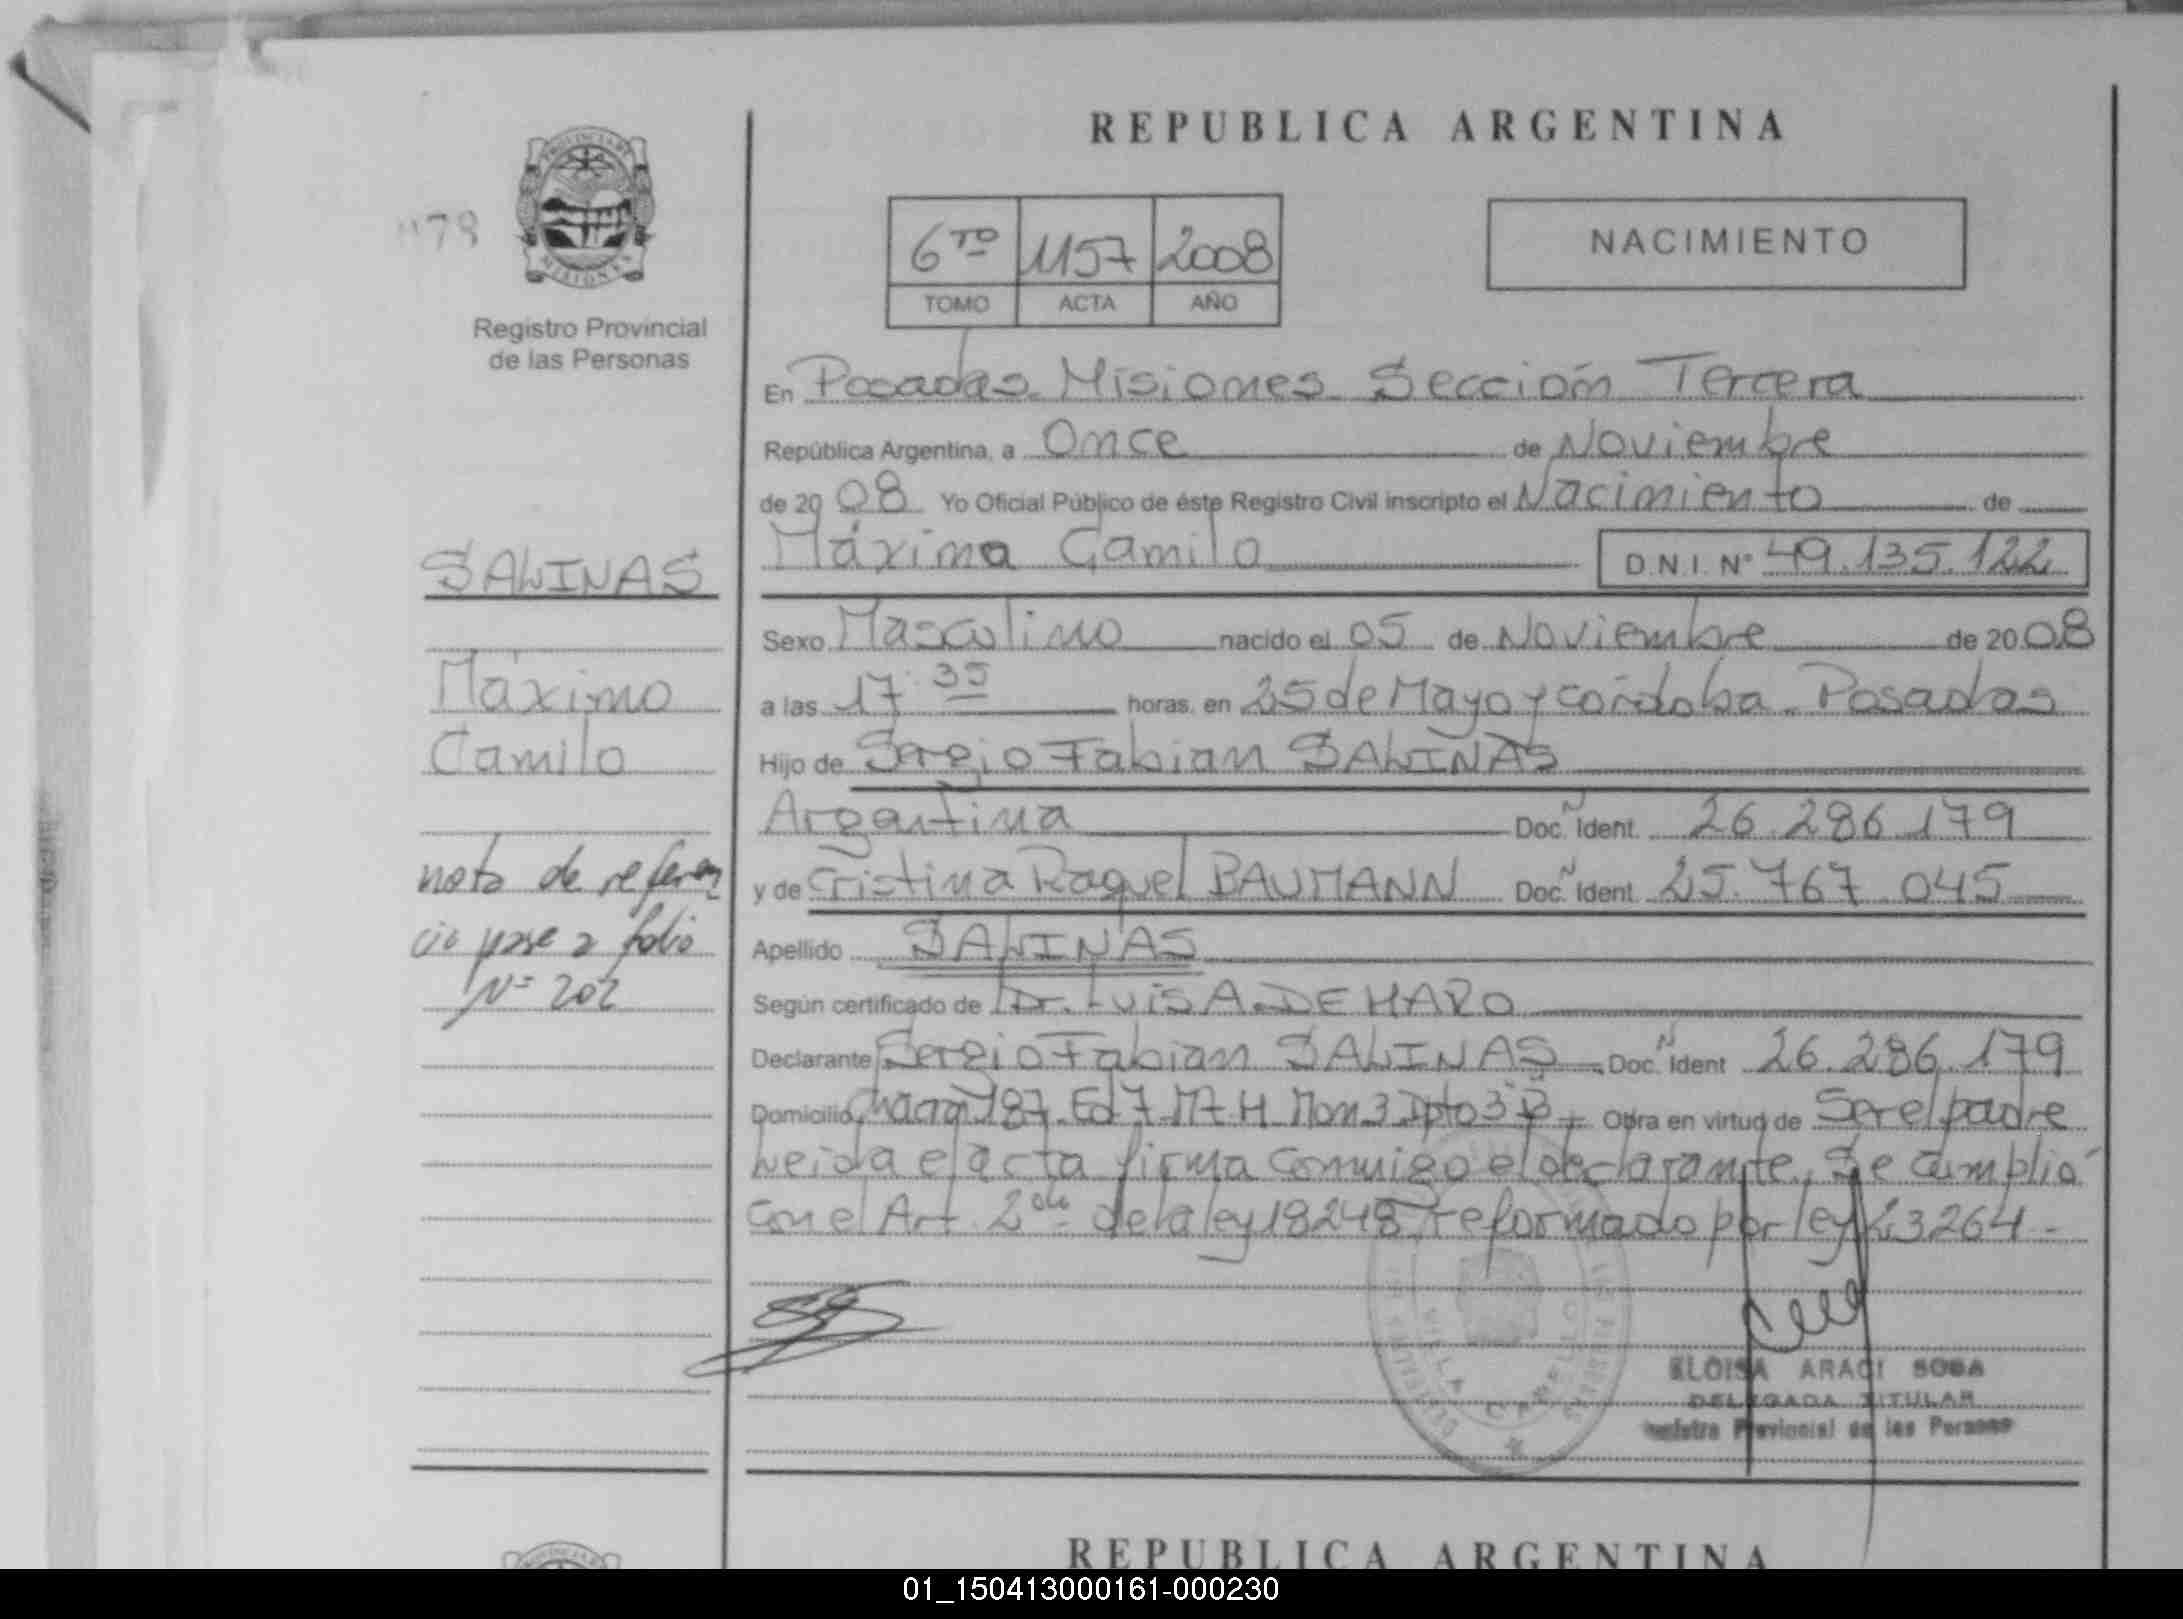 REPUBLICA ARGENTINA
PROVINCIA DE MISIONES
1178
Registro Provincial
de las Personas
6TO 1157 2008
TOMO ACTA AÑO
NACIMIENTO
En Posadas Misiones Sección Tercera
República Argentina, a Once de Noviembre
de 2008 Yo Oficial Público de éste Registro Civil inscripto el Nacimiento de
Máximo Camilo D.N.I. N° 49.135.122
Sexo Masculino nacido el 05 de Noviembre de 2008
a las 17:35 horas, en 25 de Mayo y Córdoba - Posadas
Hijo de Sergio Fabian SALINAS
Argentina Doc. Ident. 26.286.179
y de Cristina Raquel BAUMANN Doc. Ident. 25.767.045
Apellido SALINAS
Según certificado de Dr. Luis A. DE HARO
Declarante Sergio Fabian SALINAS Doc. Ident 26.286.179
Domicilio 187 Ed 7 Mon 3 Dpto 3 B Obra en virtud de Ser el padre
Leida el acta firma conmigo el declarante. Se cumplió
con el Art. 2do de la ley 18248 reformado por ley 23264 -
SALINAS
Máximo
Camilo
nota de referen
cia pase a folio
N= 202
VILLA CABELLO
ELOISA ARACI SOSA
DELEGADA TITULAR
Registro Provincial de las Personas
REPUBLICA ARGENTINA
01_150413000161-000230